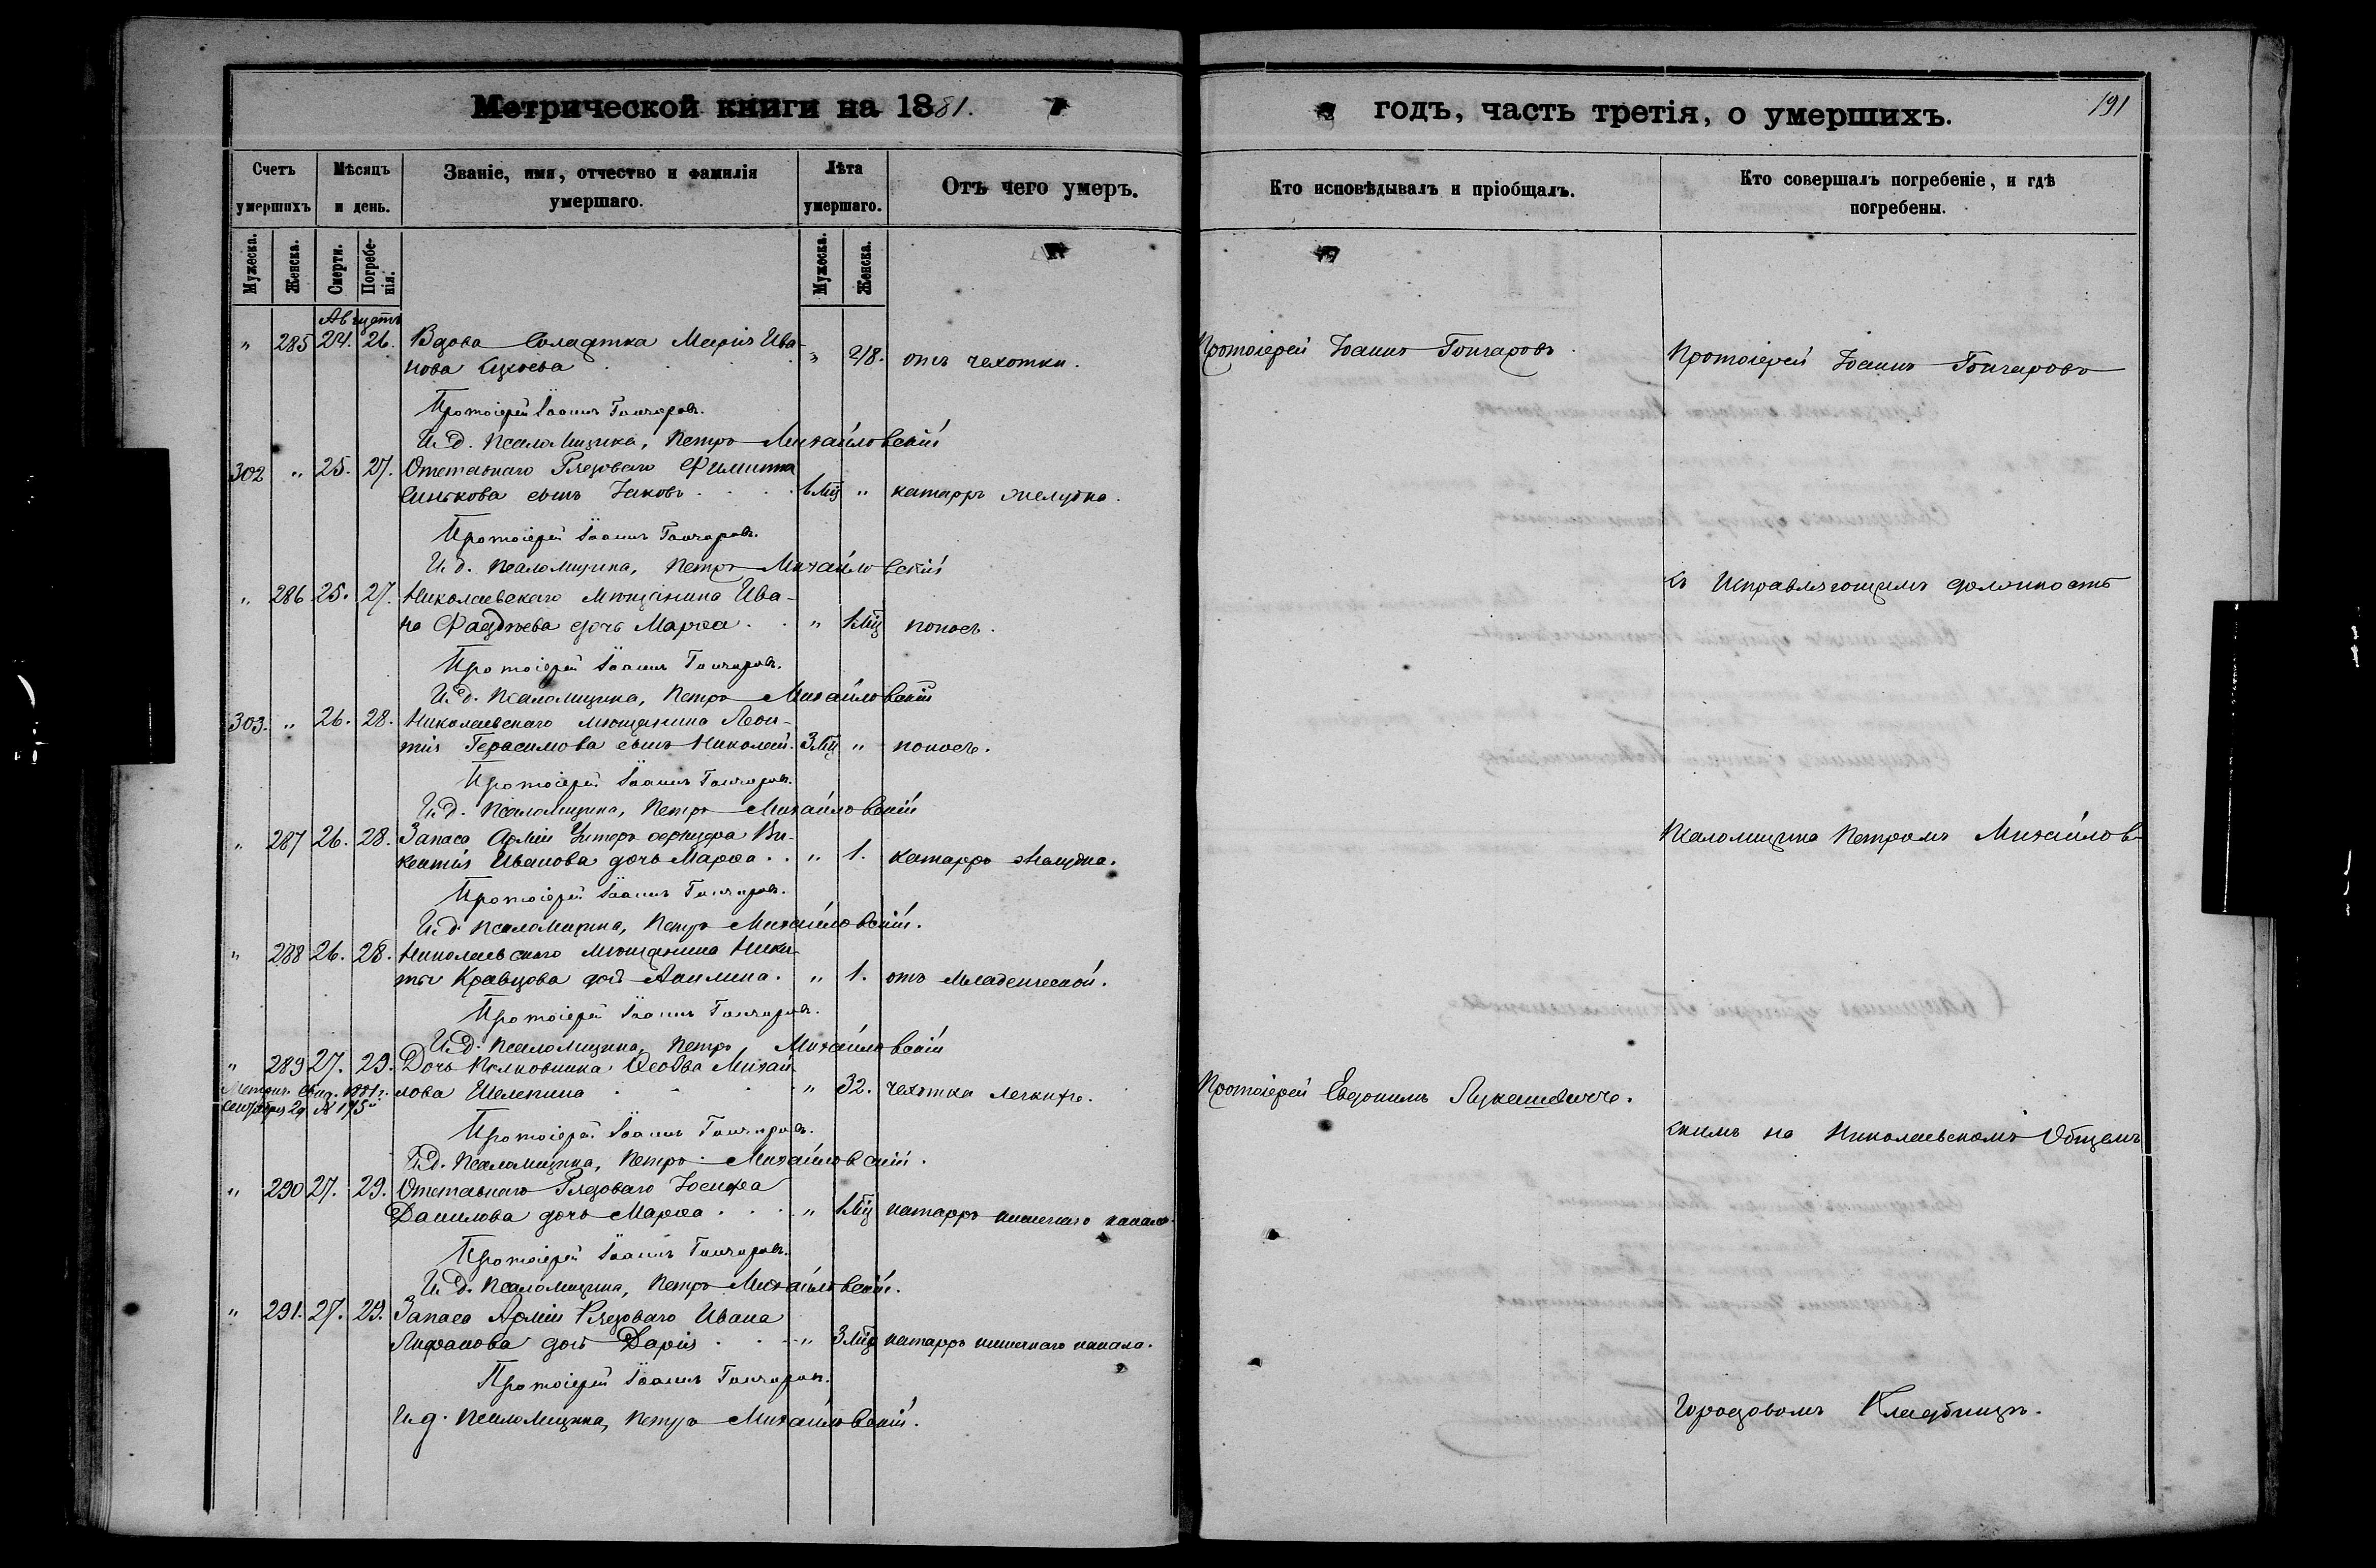 Метрической книги на 1881.
годъ, часть третія, о умершихъ.
191
Счетъ умершихъ
Мѣсяцъ и день.
Званіе, имя, отчество и фамилія умершаго.
Лѣта умершаго.
Отъ чего умеръ.
Кто исповѣдывалъ и пріобщалъ.
Кто совершалъ погребеніе, и гдѣ погребены.
Мужеска. Женска. Смерти. Погребенія. Мужеска. Женска.
Августъ
" 285 24. 26. Вдова Солдатка Марія Ива-
нова " 48. отъ чехотки. Протоіерей Іоаннъ Гончаровъ. Протоіерей Іоаннъ Гончаровъ
Протоіерей Іоаннъ Гончаровъ.
И. д. Псаломщика, Петръ Михайловскій
302 " 25. 27. Отставнаго Рядоваго Филиппа
Синькова сынъ Іаковъ " катарръ желудка.
Протоіерей Іоаннъ Гончаровъ.
И. д. Псаломщика, Петръ Михайловскій
" 286 25. 27. Николаевскаго мѣщанина Ива- съ Исправляющимъ должность
на Фаддѣева дочь Марѳа " 1 мц поносъ.
Протоіерей Іоаннъ Гончаровъ.
И. д. Псаломщика, Петръ Михайловскій
303. " 26. 28. Николаевскаго мѣщанина Леон-
тія Герасимова сынъ Николай. 3 мц " поносъ.
Протоіерей Іоаннъ Гончаровъ.
И. д. Псаломщика, Петръ Михайловскій
" 287 26. 28. Запаса Арміи Унтеръ офицера Ви- Псаломщика Петромъ Михайлов-
кентія Иванова дочь Марѳа " 1. катарръ желудка.
Протоіерей Іоаннъ Гончаровъ.
И. д. Псаломщика, Петръ Михайловскій.
" 288 26. 28. Николаевскаго мѣщанина Ники-
ты Кравцова дочь Акилина. " 1. отъ младенческой.
Протоіерей Іоаннъ Гончаровъ.
И. д. Псаломщика, Петръ Михайловскій
" 289 27. 29. Дочь Полковника Михай-
Метрич. свид. 1881 г. лова Шелепина " 32. чехотка легкихъ. Протоіерей Евдокимъ Лукашевичъ.
Сентября 29 № 175
Протоіерей Іоаннъ Гончаровъ.
скимъ на Николаевскомъ Общемъ
И. д. Псаломщика, Петръ Михайловскій.
" 290 27. 29. Отставнаго Рядоваго Іосифа
Данилова дочь Марѳа " 1 мц катарръ кишечнаго канала.
Протоіерей Іоаннъ Гончаровъ.
И. д. Псаломщика, Петръ Михайловскій.
" 291. 27. 29. Запаса Арміи Рядоваго Ивана
Лифанова дочь Дарія " 3 мц катарръ кишечнаго канала.
Протоіерей Іоаннъ Гончаровъ.
И. д. Псаломщика, Петръ Михайловскій.
Городовомъ Кладбищѣ.